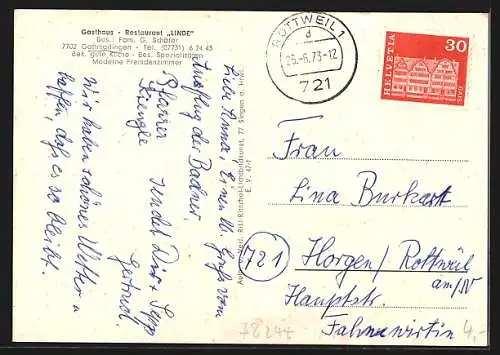 Gasthaus - Restaurant „LINDE"
Bes.: Fam. G. Schäfer
7702 Gottmadingen - Tel. (07731) 6 24 43
Bek. gute Küche - Bes. Spezialitäten
Moderne Fremdenzimmer
Liebe Anna, Einen lb. Gruß vom
Ausflug der Badner
Pfarrer
Kienzle
sendet Dir Sepp
Gertrud.
Wir haben schönes Wetter u
hoffen, daß es so bleibt.
77 Singen a. Htwl.
ROTTWEIL 1
d
29.-6.73-12
721
HELVETIA
30
GAIS
Frau
Lina Burkart
721
Horgen / Rottweil
am/N
Hauptstr.
Fahnenwirtin
78244
4,-